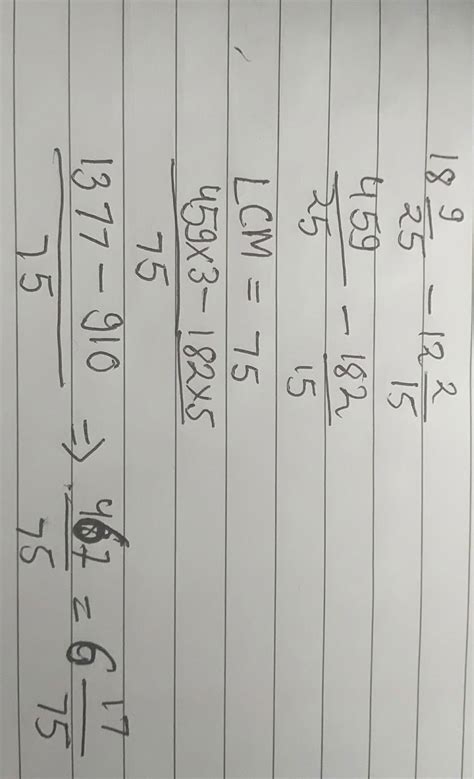 18 9/25 - 12 2/15
459/25 - 182/15
LCM = 75
459×3 - 182×5/75
1377 - 910/75 ⇒ 467/75 = 6 17/75